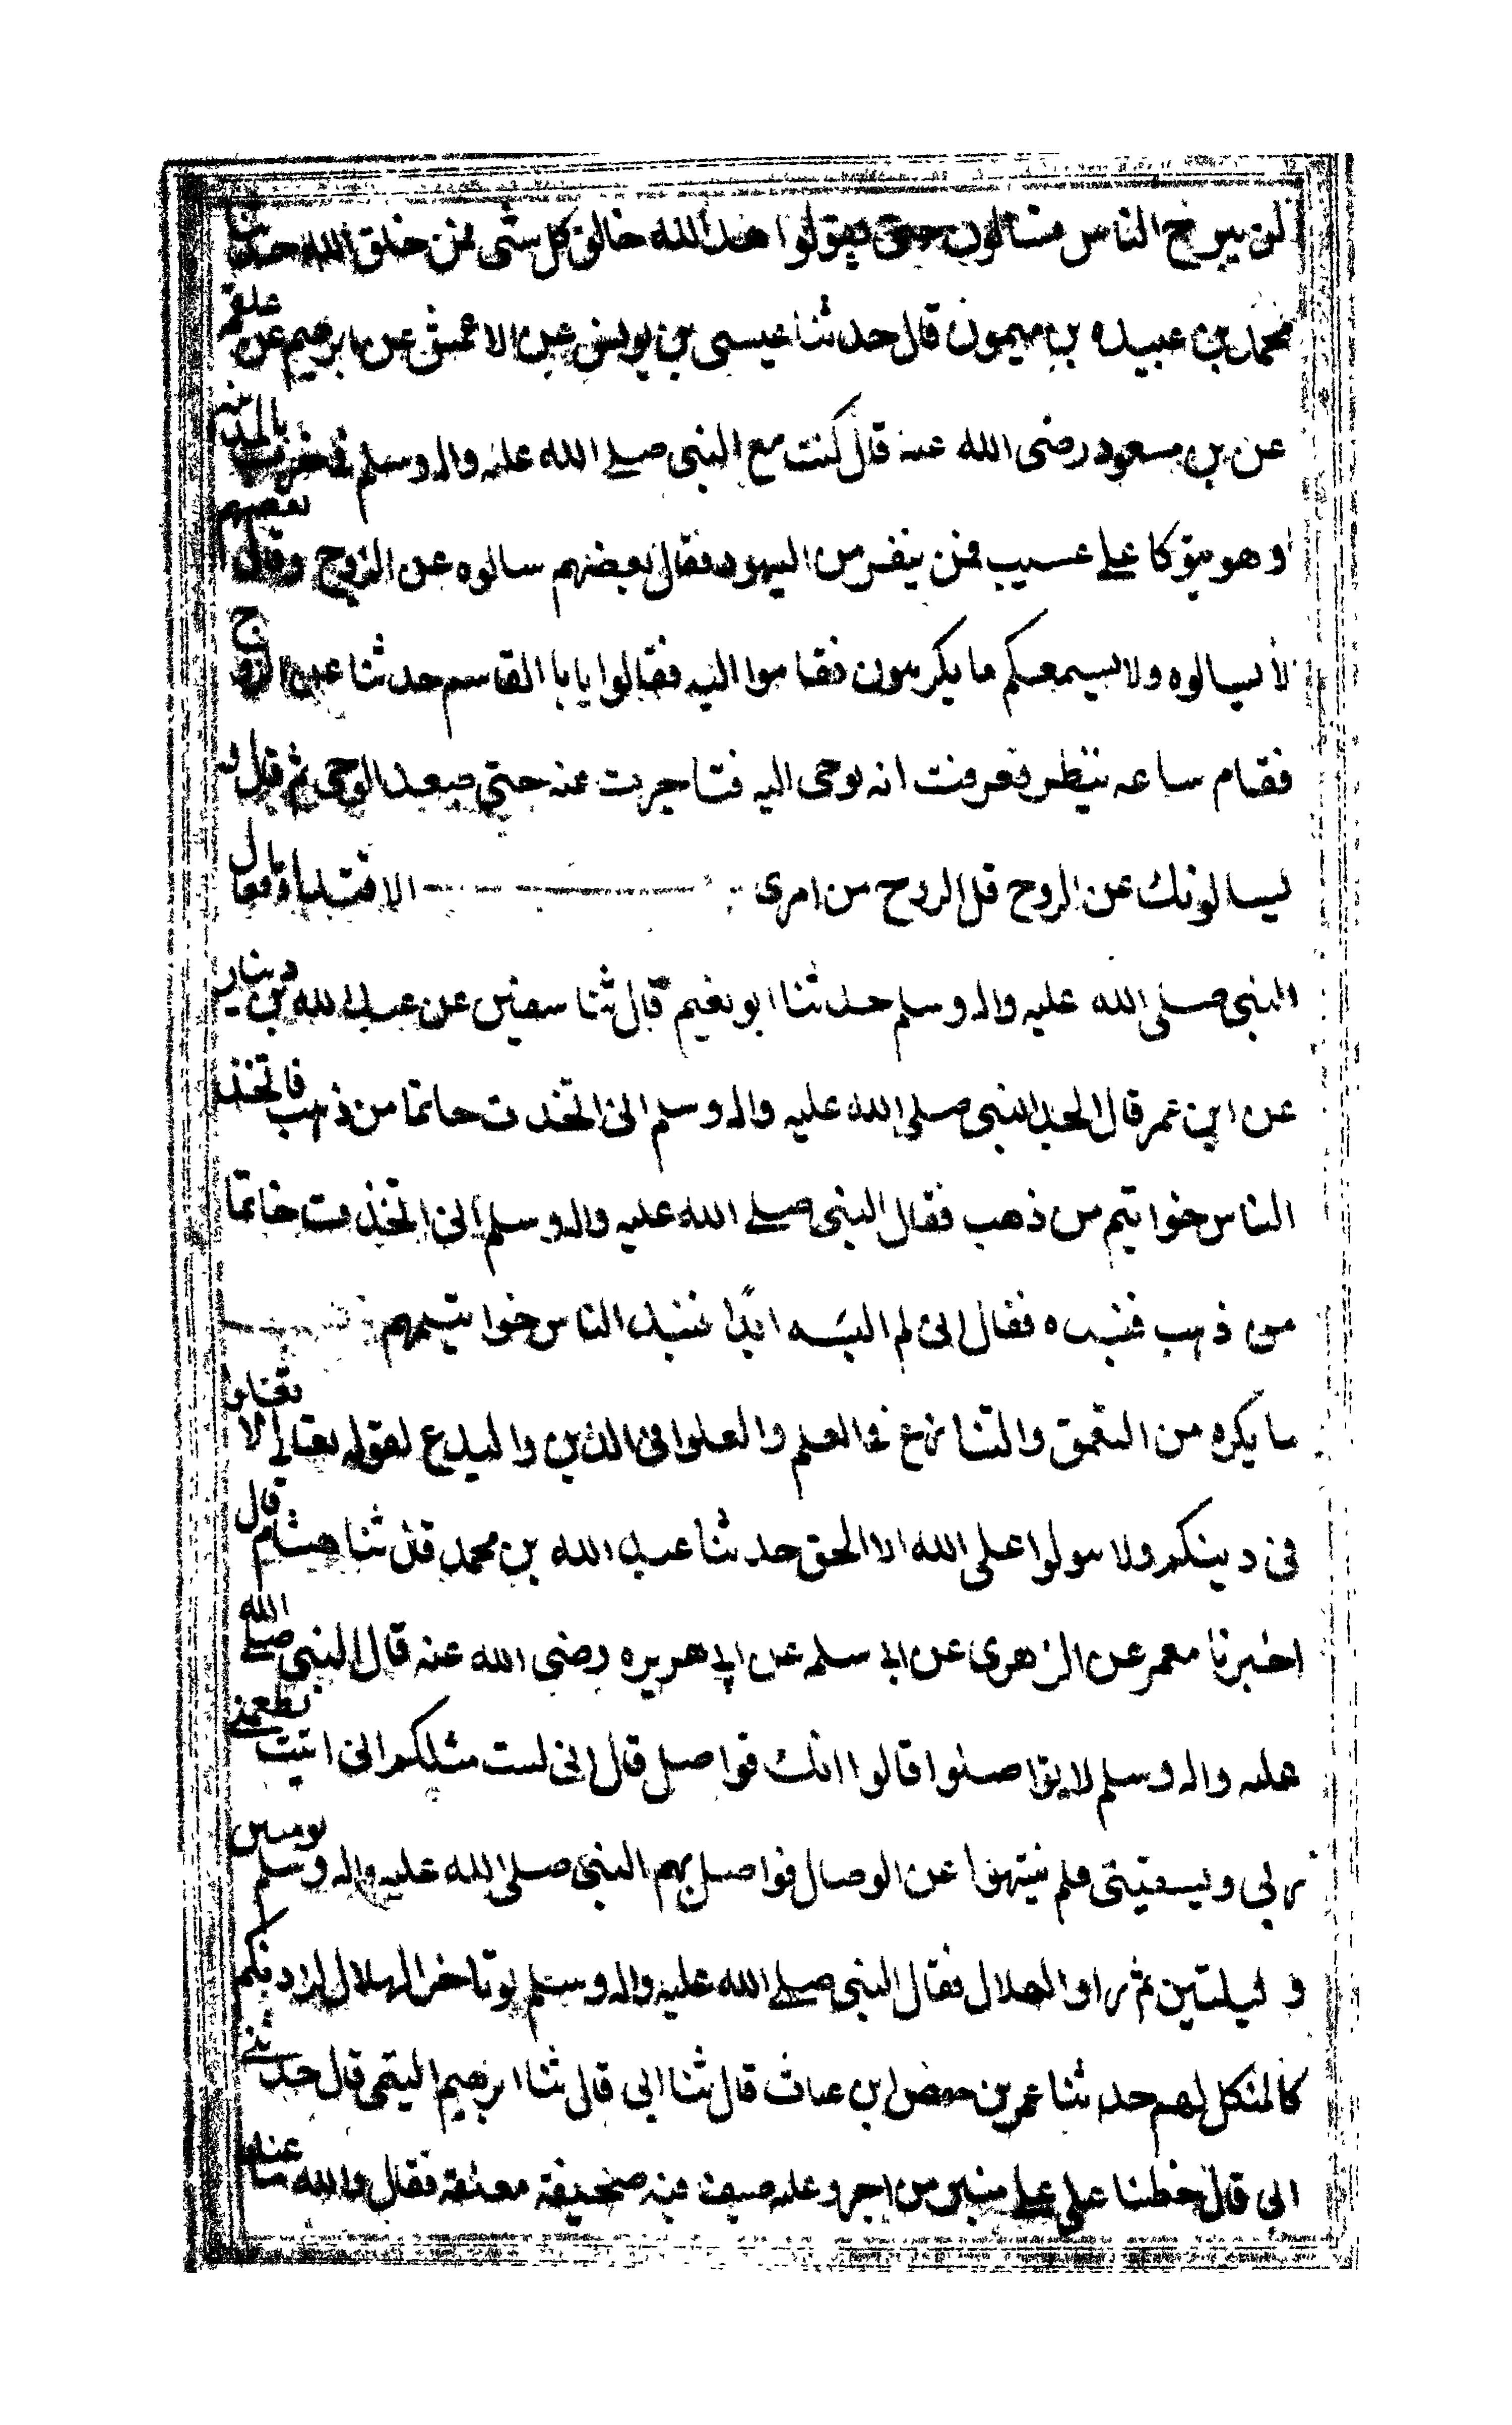 لن يبرح الناس متسالون حتى يقولوا هذا الله خالق كل شى فمن خلق الله حدثنا
محمد بن عبيده بن ميمون قال حدثنا عيسى بن يونس عن الاعمش عن ابرهيم عن علقمه
عن بن مسعود رضى الله عنه قال كنت مع النبى صلى الله عليه واله وسلم فى خرب بالمدينه
وهو متوكا على عسيب فمن بنفر من اليهود فقال بعضهم سالوه عن الروح وقال بعضهم
لا تسالوه ولا يسمعكم ما يكرهون فقاموا اليه فقالوا يابا القاسم حدثنا عن الروح
فقام ساعه ينظر فعرفت انه يوحى اليه فتاخرت عنه حتى صعد الوحى ثم قال و
يسالونك عن الروح قل الروح من امرى الاقتداء بافعال
النبى صلى الله عليه واله وسلم حدثنا ابو نعيم قال ثنا سفين عن عبد الله بن دينار
عن ابن عمر قال اتخذ النبى صلى الله عليه واله وسلم انى اتخذت خاتما من ذهب فاتخذ
الناس خواتيم من ذهب فقال النبى صلى الله عليه واله وسلم انى اتخذت خاتما
من ذهب فنبده فقال انى لم البسه ابدًا فنبد الناس خواتيمهم
ما يكره من التعمق والتنازع فى العلم والغلوا فى الدين والبدع لقوله تعالى لا تغلوا
فى دينكم ولا تقولوا على الله الا الحق حدثنا عبد الله بن محمد قال ثنا هشام قال
اخبرنا معمر عن الزهرى عن ابى سلمه عن ابى هريره رضى الله عنه قال النبى صلى الله
عليه واله وسلم لا تواصلوا قالوا انك تواصل قال انى لست مثلكم انى ابيت يطعمنى
ربى ويسقينى فلم ينتهوا عن الوصال فواصل بهم النبى صلى الله عليه واله وسلم يومين
و ليلتين ثم راوا الهلال فقال النبى صلى الله عليه واله وسلم لو تاخر الهلال لزدتكم
كالمنكل لهم حدثنا عمر بن حفص ابن غياث قال ثنا ابى قال ثنا ابرهيم التيمى قال حدثنى
ابى قال خطبنا على على منبر من اجر وعليه سيف فيه صحيفة معلقة فقال والله ما عندنا